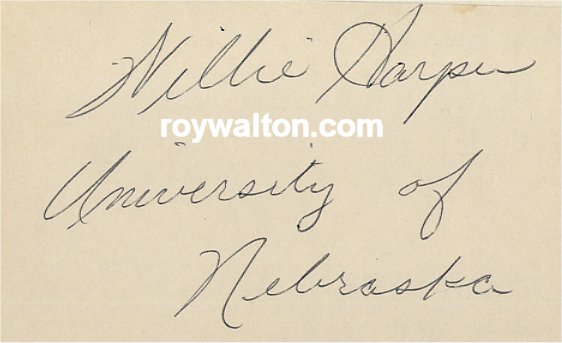 Willie Harper
roywalton.com
University of
Nebraska